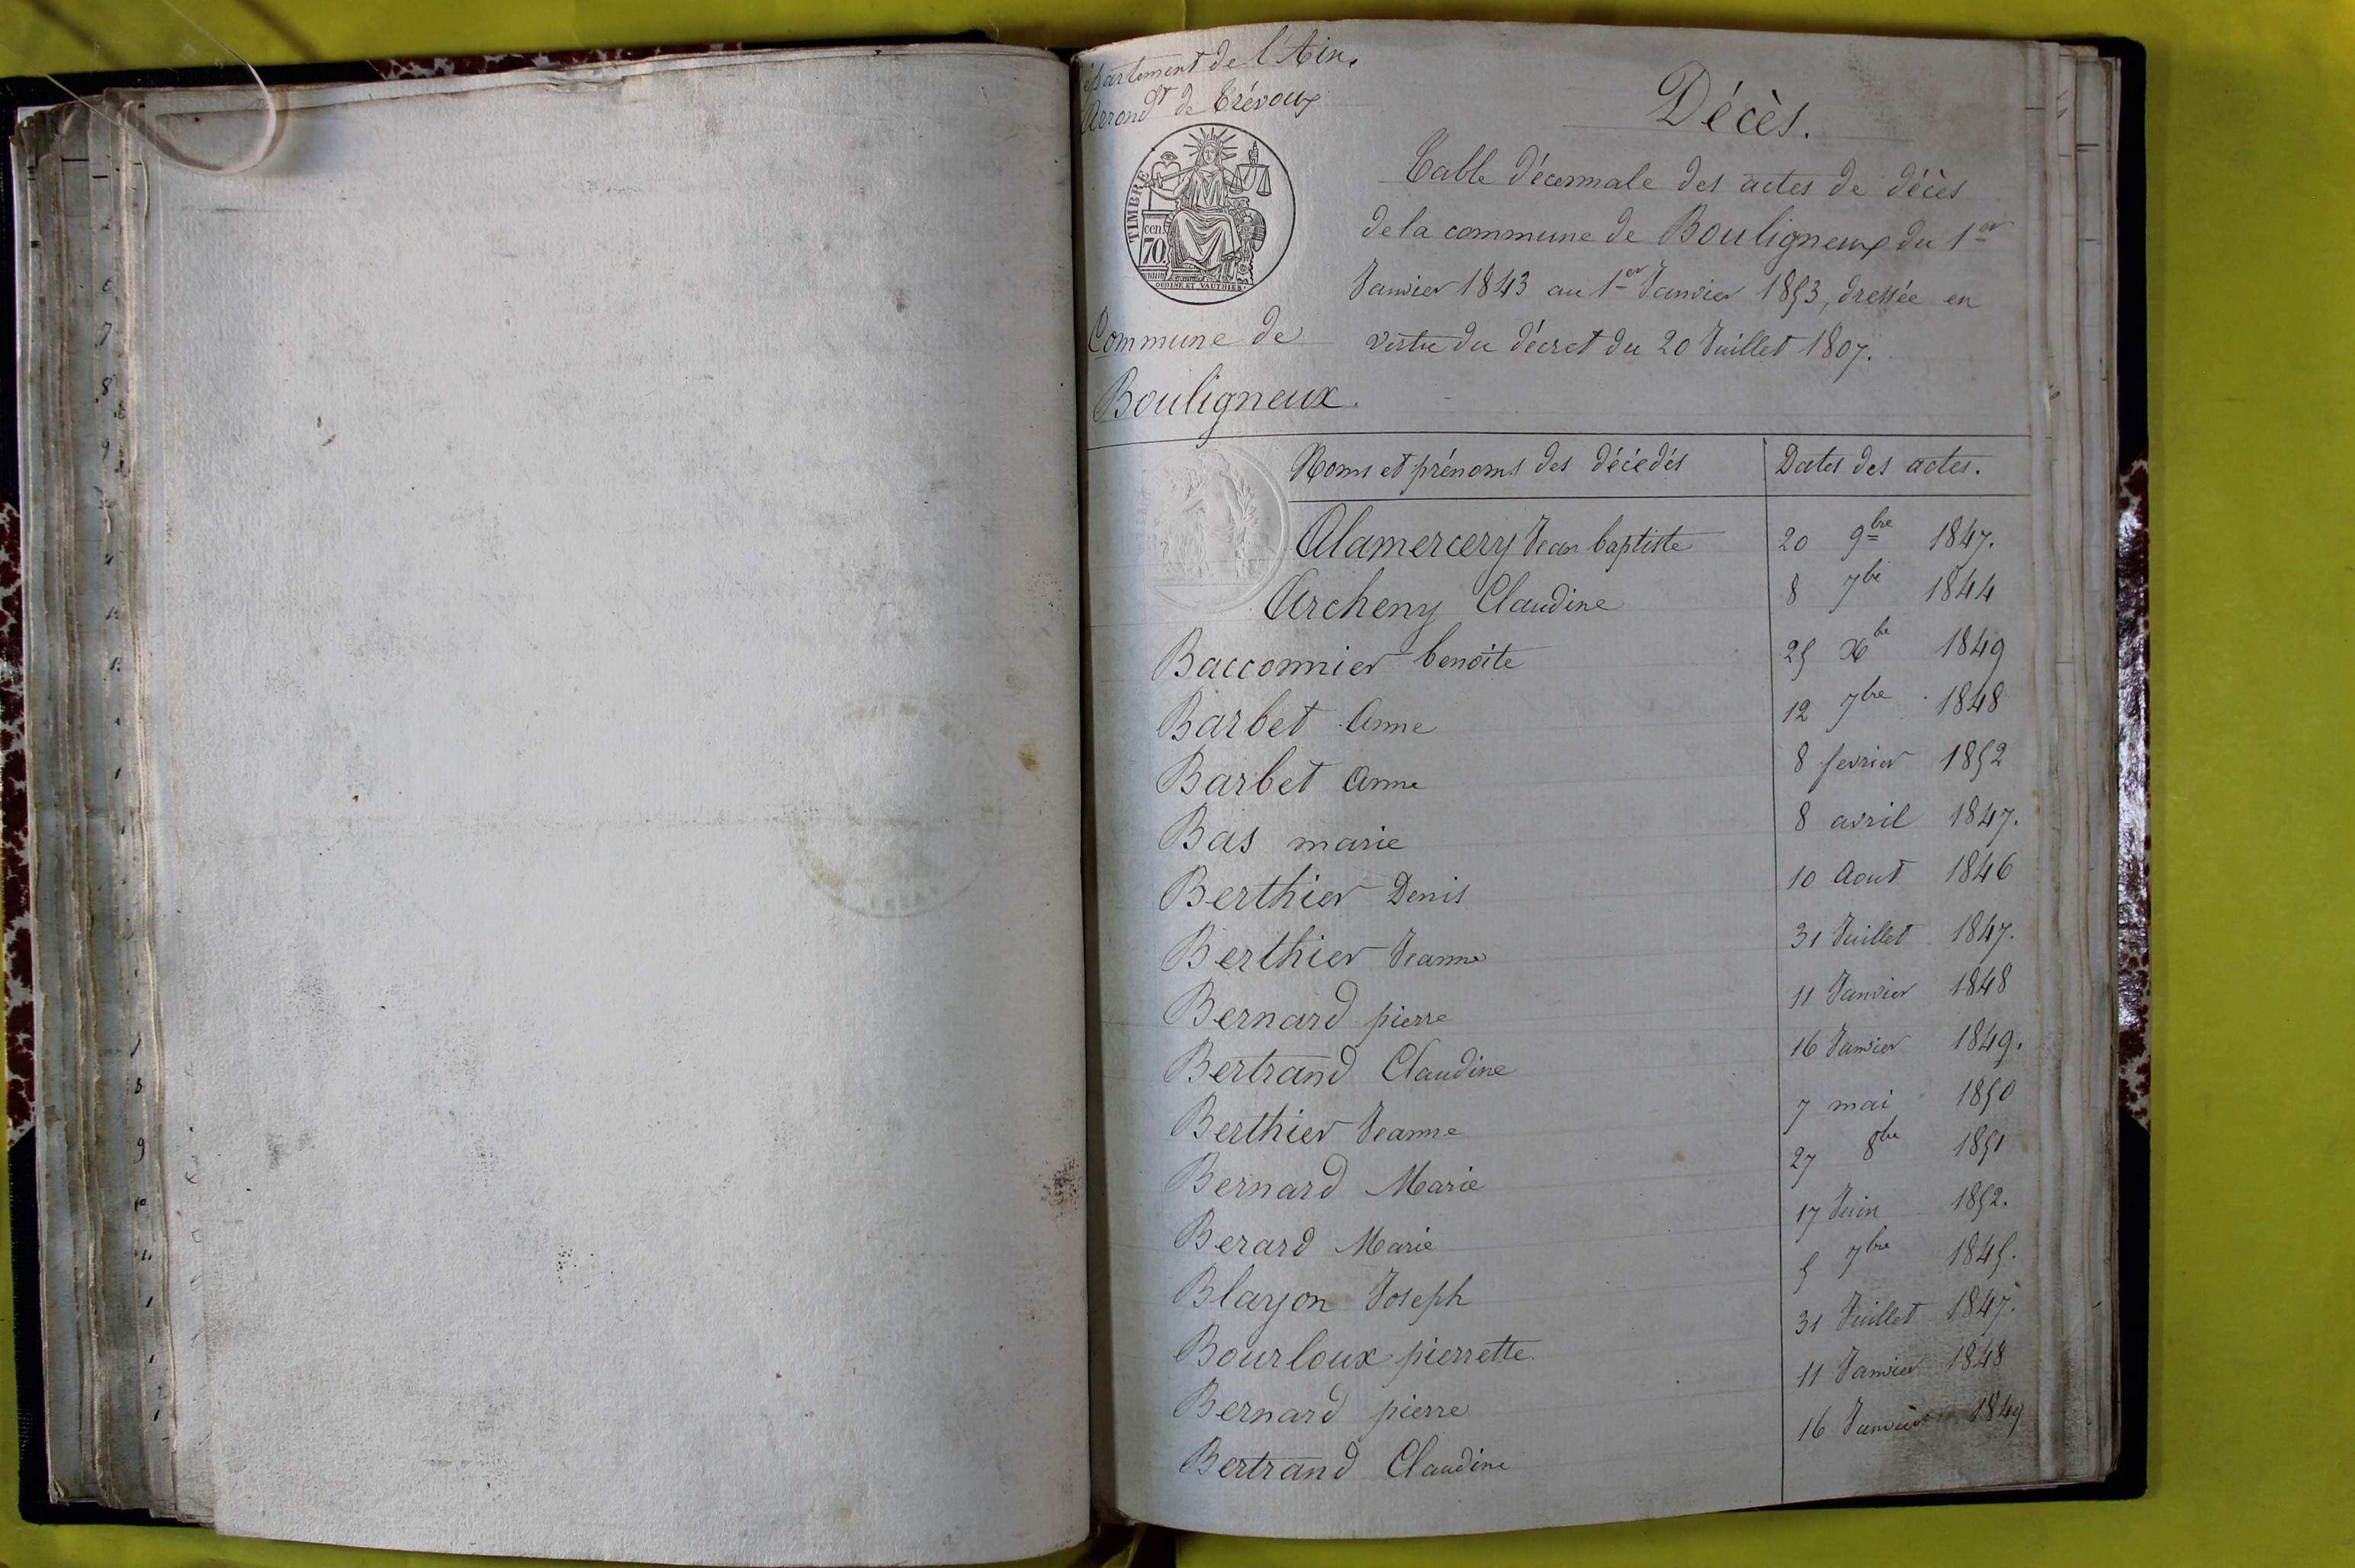 épartement de l'Ain.
Arrond.t de Trévoux
TIMBRE
cen.
70.
OUDINÉ ET VAUTHIER
Commune de
Bouligneux.
Décès.
Table décennale des actes de décès
de la commune de Bouligneux du 1er
Janvier 1843 au 1er Janvier 1853, dressée en
vertu du décret du 20 Juillet 1807.
Noms et prénoms des décédés Dates des actes.
Alamercery Jean baptiste 20 9bre 1847.
Archeny Claudine 8 7bre 1844
Bacconnier benoite 25 Xbre 1849
Barbet Anne 12 7bre 1848
Barbet Anne 8 fevrier 1852
Bas marie 8 avril 1847.
Berthier Denis 10 Aout 1846
Berthier Jeanne 31 Juillet 1847.
Bernard pierre 11 Janvier 1848
Bertrand Claudine 16 Janvier 1849.
Berthier Jeanne 7 mai 1850
Bernard Marie 27 8bre 1851
Berard Marie 17 Juin 1852.
Blayon Joseph 5 7bre 1845.
Bourloux pierrette. 31 Juillet 1847.
Bernard pierre 11 Janvier 1848
Bertrand Claudine 16 Janvier 1849